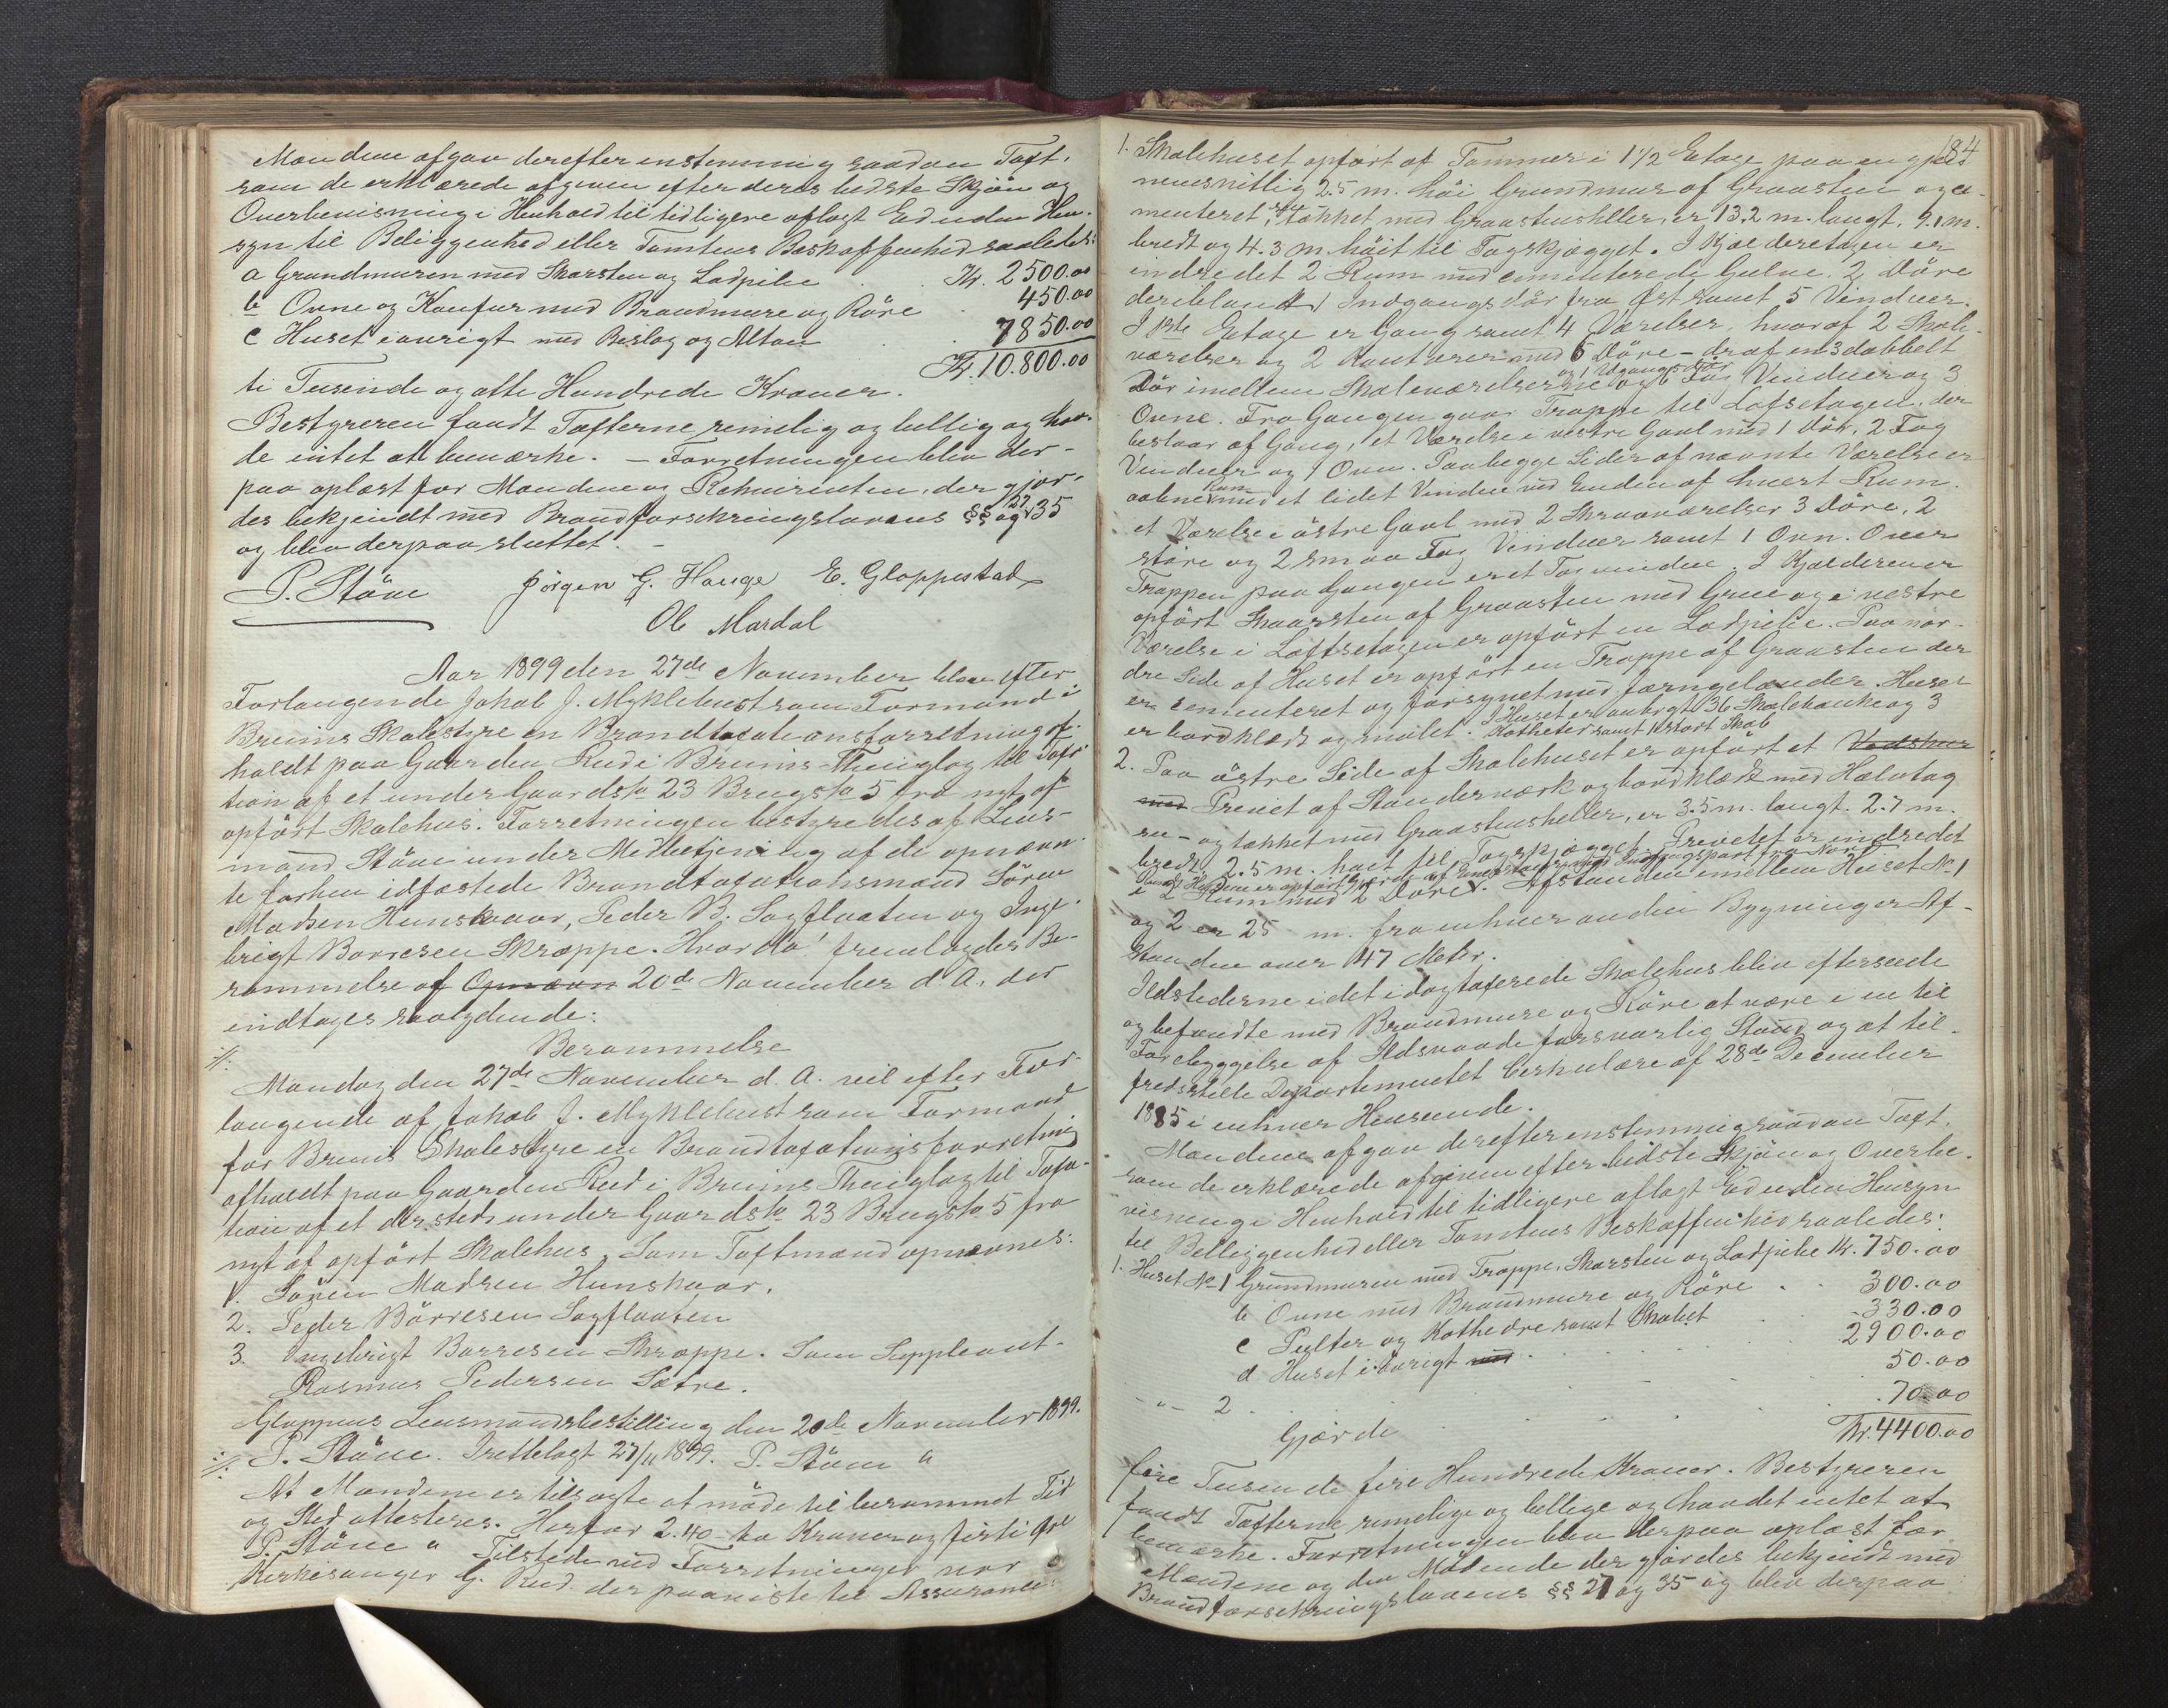 Mændene afgav derefter enstemmig saadan Taxt,
som de erklærede afgiven efter deres bedste Skjøn og
Overbevisning i Henhold til tidligere aflagt Ed uden Hen-
syn til Beliggenhed eller Tomtens Beskaffenhed saaledes:
a Grundmuren med Skorsten og Ladpibe . . Kr. 2500.00
b Ovne og Komfur med Brandmure og Röre . 450.00
c Huset iøvrigt med Beslag og Altan . . 7850.00
Kr. 10.800.00
ti Tusende og otte Hundrede Kroner.
Bestyreren fandt Taxterne rimelig og billig og hav-
de intet at bemærke. – Forretningen blev der-
paa oplæst for Mændene og Rekvirenten, der gjor-
des bekjendt med Brandforsikringslovens §§ 27 og 35
og blev derpaa sluttet. –
P. Støve Jörgen G. Hauge E. Gloppestad
Ole Mardal
Aar 1899 den 27de November blev efter
Forlangende Jakob J. Myklebust som Formand i
Breims Skolestyre en Brandtaxationsforretning af-
holdt paa Gaarden Reed i Breims Thinglag til Taxa-
tion af et under Gaards No 23 Brugs No 5 fra nyt af
opført Skolehus. Forretningen bestyredes af Lens-
mand Støve under Medbetjening af de opnævn-
te forhen edfæstede Brandtaxationsmænd Sören
Madsen Hunskaar, Peder B. Sagflaaten og Inge-
brigt Børresen Skrøppe. Hvorda! fremlagdes Be-
rammelse af Opnævn 20de November d. A. der
indtages saalydende:
·/. Berammelse
Mandag den 27de November d. A. vil efter For-
langende af Jakob J. Myklebust som Formand
for Breims Skolestyre en Brandtaxationsforretning
afholdt paa Gaarden Reed i Breims Thinglag til Taxa-
tion af et dersteds under Gaards No 23 Brugs No 5 fra
nyt af opført Skolehus. Som Taxtmænd opnævnes:
1. Sören Madsen Hunskaar.
2. Peder Börresen Sagflaaten
3. Ingebrigt Børresen Skrøppe. Som Suppleant.
Rasmus Pedersen Sætre.
Gloppens Lensmandsbestilling den 20de November 1899.
P. Støve. Irettelagt 27/11 1899. P. Støve "
·/. At Mændene er tilsagte at møde til berammet Tid
og Sted attesteres. Herfor 2.40 – to Kroner og firti Øre
P. Støve " Tilstede ved Forretningen var
Kirkesanger G. Reed der paaviste til Assurance:
184
1. Skolehuset opført af Tømmer i 1 1/2 Etage paa en gjen-
nemsnitlig 2.5 m. høi Grundmur af Graasten og ce-
menteret, tækket med Graastensheller, er 13.2 m. langt, 9.1 m.
bredt og 4.3 m. høit til Tagskjægget. I Kjælderetagen er
indredet 2 Rum med cementerede Gulve, 2 Döre
deriblandt 1 Indgangsdör fra Øst samt 5 Vinduer.
I 1ste Etage er Gang samt 4 Værelser, hvoraf 2 Skole-
værelser og 2 Kontorer med 6 Döre – deraf en 3dobbelt
Dör imellem Skoleværelserne og 1 Udgangsdör og 6 Fag Vinduer og 3
Ovne. Fra Gangen gaar Trappe til Loftsetagen, der
bestaar af Gang, et Værelse i vestre Gavl med 1 Dör, 2 Fag
Vinduer og 1 Ovn. Paa begge Sider af nævnte Værelse er
aabne Rum med et lidet Vindue ved Enden af hvert Rum.
et Værelse i östre Gavl med 2 Skraaværelser 3 Döre, 2
störe og 2 smaa Fag Vinduer samt 1 Ovn. Over
Trappen paa Gangen er et Tagvindue. I Kjælderen er
opført Skorsten af Graasten med Grue og i vestre
Værelse i Loftsetagen er opført en Ladpibe. Paa nor-
dre Side af Huset er opført en Trappe af Graasten der
er cementeret og forsynet med Jerngelænder. Huset
er bordklædt og malet. I Huset er anbragt 36 Skolebænke og 3
Katheter samt 1 stort Skab
2. Paa østre Side af Skolehuset er opført et Vedskur
med Privet af Stenderværk og bordklædt med Halvtag
su- og tækket med Graastensheller, er 3.5 m. langt. 2.7 m.
bredt, 2.5 m. høit til Tagskjægget. Privetet er indredet
i 2 Rum med 2 Döre. Afstanden imellem Huset No 1
og 2 er 25 m. fra enhver anden Bygninger Af-
standen over 47 Meter.
Ildstederne i det i dag taxerede Skolehus blev efterseede
og befandtes med Brandmure og Röre at være i en til
Forebyggelse af Ildsvaade forsvarlig Stand og at til-
fredsstille Departementets Cirkulære af 28de December
1885 i enhver Henseende.
Mændene afgav derefter enstemmig saadan Taxt,
som de erklærede afgiven efter bedste Skjøn og Overbe-
visning i Henhold til tidligere aflagt Ed uden Hensyn
til Beliggenhed eller Tomtens Beskaffenhed saaledes:
1. Huset No 1 Grundmuren med Trappe, Skorsten og Ladpibe Kr. 750.00
b Ovne med Brandmure og Röre . . 300.00
c Pulter og Kathedre samt Skabet . 330.00
d Huset iøvrigt med . . . 2900.00
- " - 2 . . . 50.00
Gjærde . . . 70.00
Kr. 4400.00
fire Tusende fire Hundrede Kroner. Bestyreren
fandt Taxterne rimelige og billige og havdet intet at
bemærke. Forretningen blev derpaa oplæst for
Mændene og den Mødende der gjørdes bekjendt med
Brandforsikringslovens §§ 27 og 35 og blev derpaa